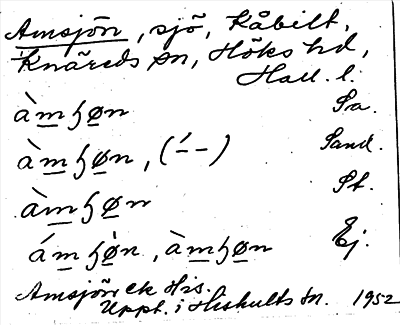 Amsjön, sjö, Kåbilt,
Knäreds sn, Höks hd,
Hall. l.
àmɧøn Sa.
àmɧøn, (´--) Sand.
àmɧøn St.
ámɧø̀n, àmɧøn Ej.
Amsjön ek His.
Uppt. i Hishults sn. 1952